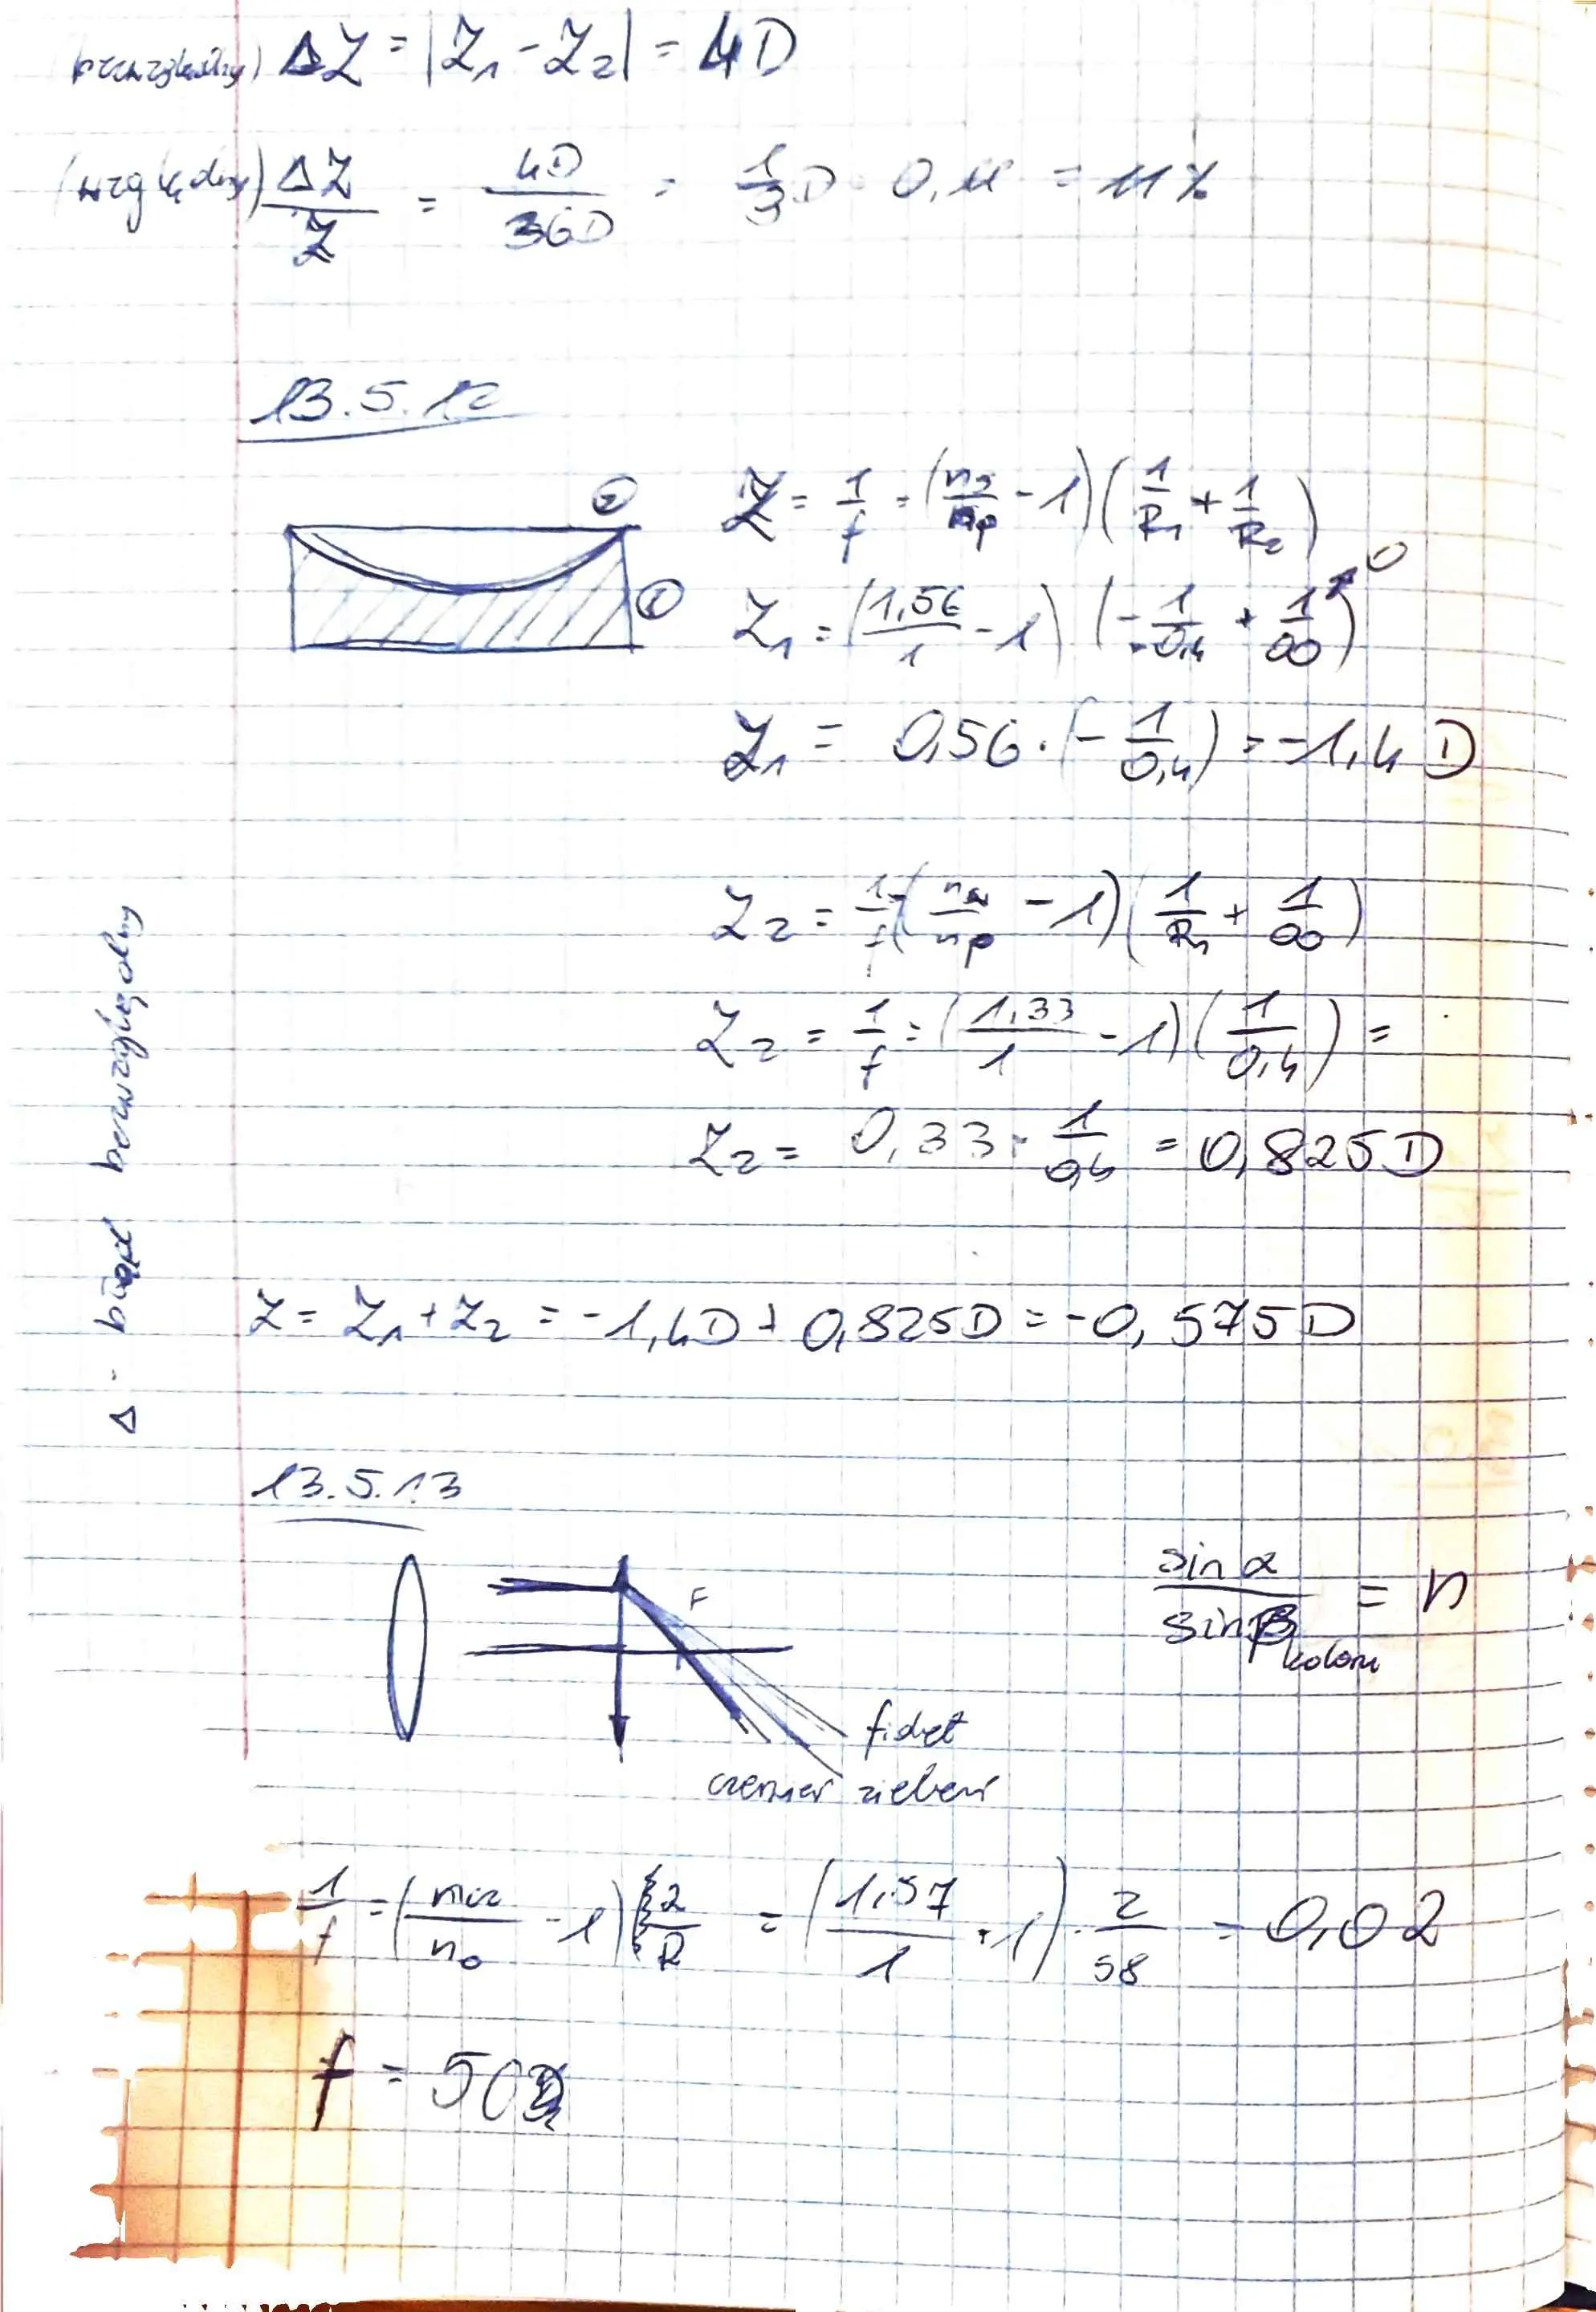 (bezwzględny) ΔZ = |Z₁ - Z₂| = 4D
(względny) ΔZ/Z = 4D/36D = 1/3D 0,11 = 11%
13.5.12
②
①
Z = 1/f = (ns/np - 1)(1/R₁ + 1/R₂)
Z₁ = (1,56/1 - 1)(-1/0,4 + 1/∞) 0
Z₁ = 0,56 · (-1/0,4) = -1,4 D
Z₂ = 1/f (nw/np - 1)(1/R₁ + 1/∞)
Z₂ = 1/f = (1,33/1 - 1)(1/0,4) =
Z₂ = 0,33 · 1/0,4 = 0,825D
Δ - błąd bezwzględny
Z = Z₁ + Z₂ = -1,4D + 0,825D = -0,575D
13.5.13
F
fiolet
czerwień zieleń
sin α/sin β koloru = n
1/f = (/n₀ - 1) 2/R = (1,57/1 - 1) · 2/58 = 0,02
f = 50